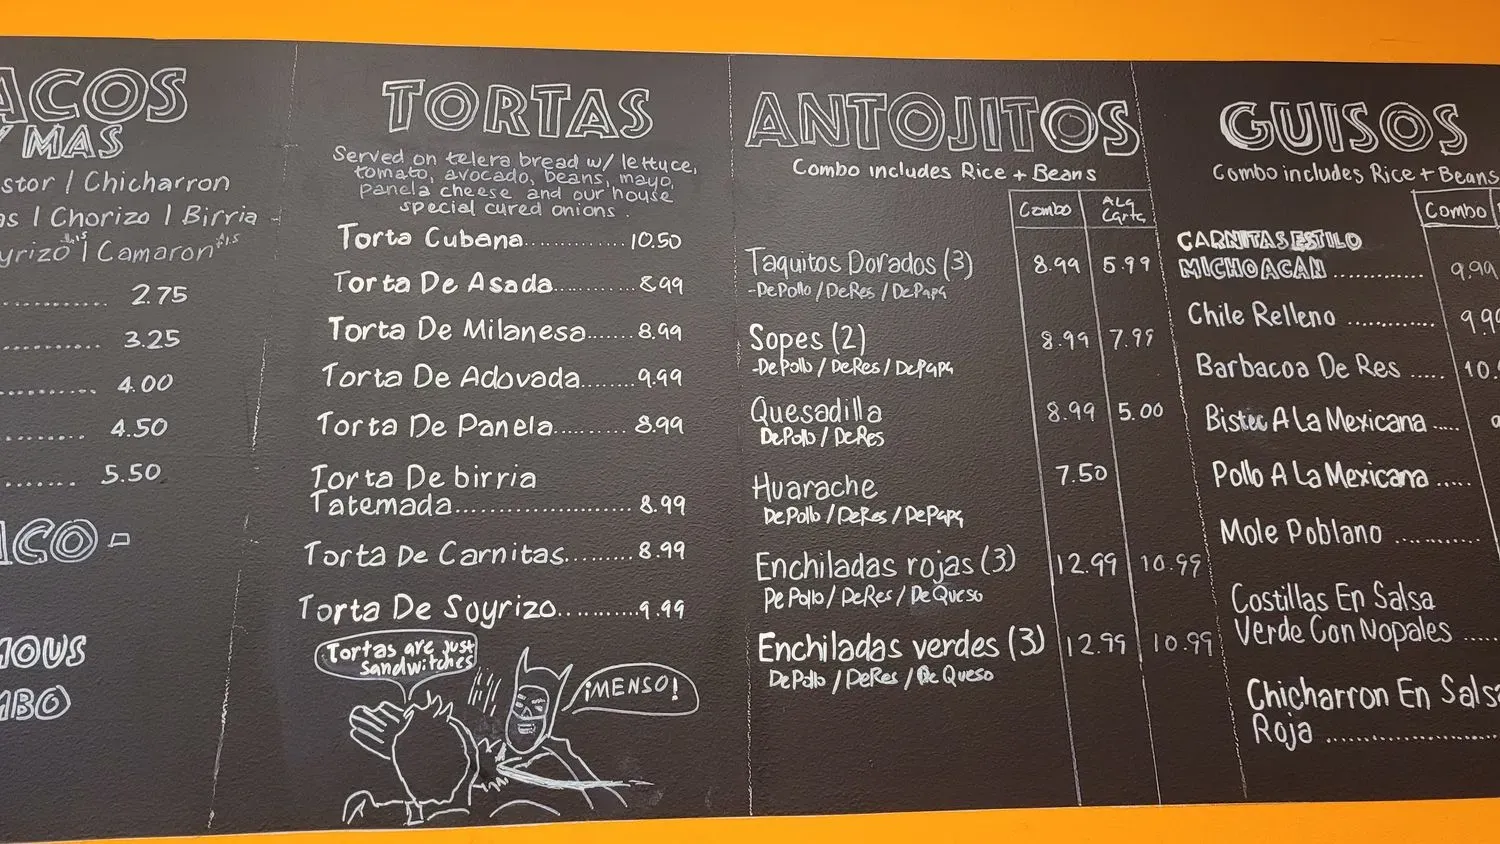 ACOS
Y MAS
stor | Chicharron
as | Chorizo | Birria -
yrizo | Camaron
2.75
3.25
4.00
4.50
5.50
ACO -
MOUS
MBO
TORTAS
Served on telera bread w/ lettuce,
tomato, avocado, beans, mayo,
panela cheese and our house
special cured onions.
Torta Cubana.............10.50
Torta De Asada...........8.99
Torta De Milanesa.......8.99
Torta De Adovada........9.99
Torta De Panela...........8.99
Torta De birria
Tatemada........................8.99
Torta De Carnitas.........8.99
Torta De Soyrizo...........9.99
Tortas are just
sandwitches
¡MENSO!
ANTOJITOS
Combo includes Rice + Beans
Combo ALa Carta
Taquitos Dorados (3) 8.99 5.99
-De Pollo / De Res / De Papa
Sopes (2) 8.99 7.99
-De Pollo / De Res / De Papa
Quesadilla 8.99 5.00
De Pollo / De Res
Huarache 7.50
De Pollo / De Res / De Papa
Enchiladas rojas (3) 12.99 10.99
De Pollo / De Res / De Queso
Enchiladas verdes (3) 12.99 10.99
De Pollo / De Res / De Queso
GUISOS
Combo includes Rice + Beans
Combo
CARNITAS ESTILO
MICHOACAN ............ 9.99
Chile Relleno ............ 9.99
Barbacoa De Res ..... 10.
Bistec A La Mexicana .....
Pollo A La Mexicana .....
Mole Poblano ...........
Costillas En Salsa
Verde Con Nopales .....
Chicharron En Salsa
Roja ......................